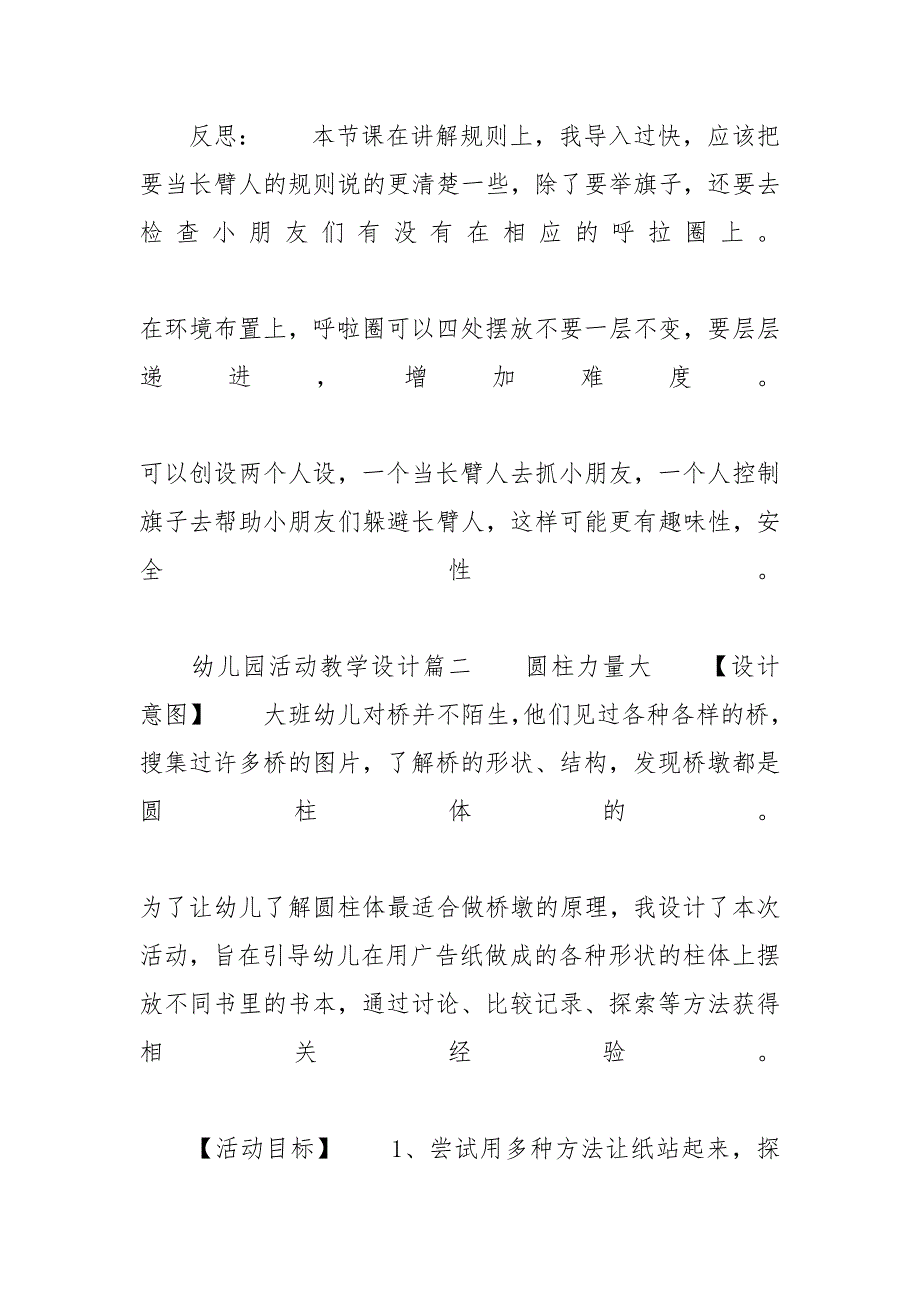 反思： 本节课在讲解规则上，我导入过快，应该把
要当长臂人的规则说的更清楚一些，除了要举旗子，还要去
检查小朋友们有没有在相应的呼拉圈上。
在环境布置上，呼啦圈可以四处摆放不要一层不变，要层层
递进，增加难度。
可以创设两个人设，一个当长臂人去抓小朋友，一个人控制
旗子去帮助小朋友们躲避长臂人，这样可能更有趣味性，安
全性。
幼儿园活动教学设计篇二 圆柱力量大 【设计
意图】 大班幼儿对桥并不陌生，他们见过各种各样的桥，
搜集过许多桥的图片，了解桥的形状、结构，发现桥墩都是
圆柱体的。
为了让幼儿了解圆柱体最适合做桥墩的原理，我设计了本次
活动，旨在引导幼儿在用广告纸做成的各种形状的柱体上摆
放不同书里的书本，通过讨论、比较记录、探索等方法获得
相关经验。
【活动目标】 1、尝试用多种方法让纸站起来，探